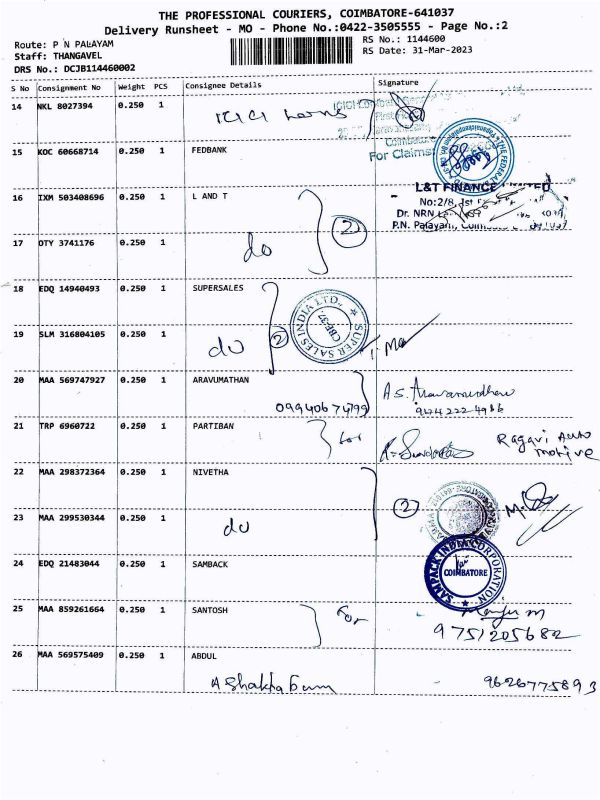 THE PROFESSIONAL COURIERS, COIMBATORE-641037
Delivery Runsheet - MO - Phone No.:0422-3505555 - Page No.:2
Route: P N PALAYAM
RS No.: 1144600
Staff: THANGAVEL
RS Date: 31-Mar-2023
DRS No.: DCJB114460002
S No Consignment No Weight PCS Consignee Details Signature
14 NKL 8027394 0.250 1
ICICI
For Claims
15 KOC 60668714 0.250 1 FEDBANK
THE FEDERAL
16 IXM 503408696 0.250 1 L AND T
L&T FINANCE LIMITED
No:2/8, 1st
Dr. NRN
P.N. Palayam,
17 OTY 3741176 0.250 1
do
2
18 EDQ 14940493 0.250 1 SUPERSALES
SUPER SALES INDIA LTD.,
CBE-37
19 SLM 316804105 0.250 1
do
2
20 MAA 569747927 0.250 1 ARAVUMATHAN
09940674799
9442224986
21 TRP 6960722 0.250 1 PARTIBAN
for
Ragavi Auto
motive
22 MAA 298372364 0.250 1 NIVETHA
2
23 MAA 299530344 0.250 1
do
24 EDQ 21483044 0.250 1 SAMBACK
SAMPACK INDIA CORPORATION
COIMBATORE
25 MAA 859261664 0.250 1 SANTOSH
For
9751205682
26 MAA 569575409 0.250 1 ABDUL
9626775893